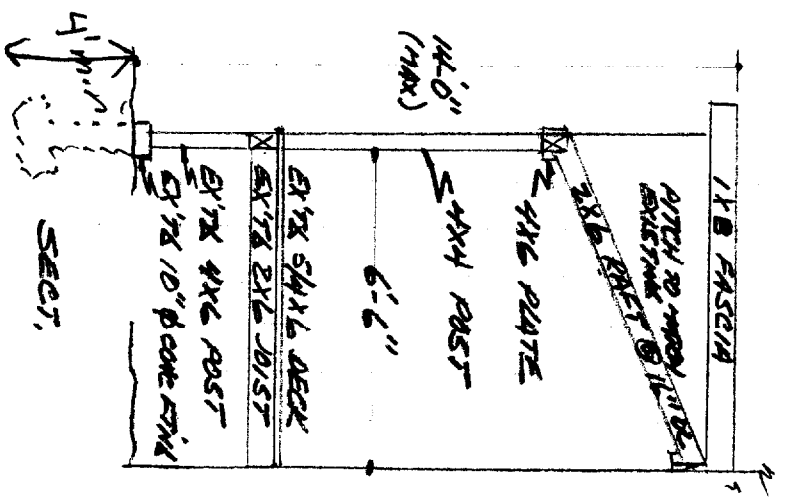 1X8 FASCIA
PITCH TO MATCH
EXISTING
2X6 RAFT @ 16" OC
4X6 PLATE
4X4 POST
14'-0"
(MAX)
6'-6"
EX'TG 5/4X6 DECK
EX'TG 2X6 JOIST
EX'TG 4X6 POST
EX'TG 10"φ CONC FTNG
4' min
SECT.